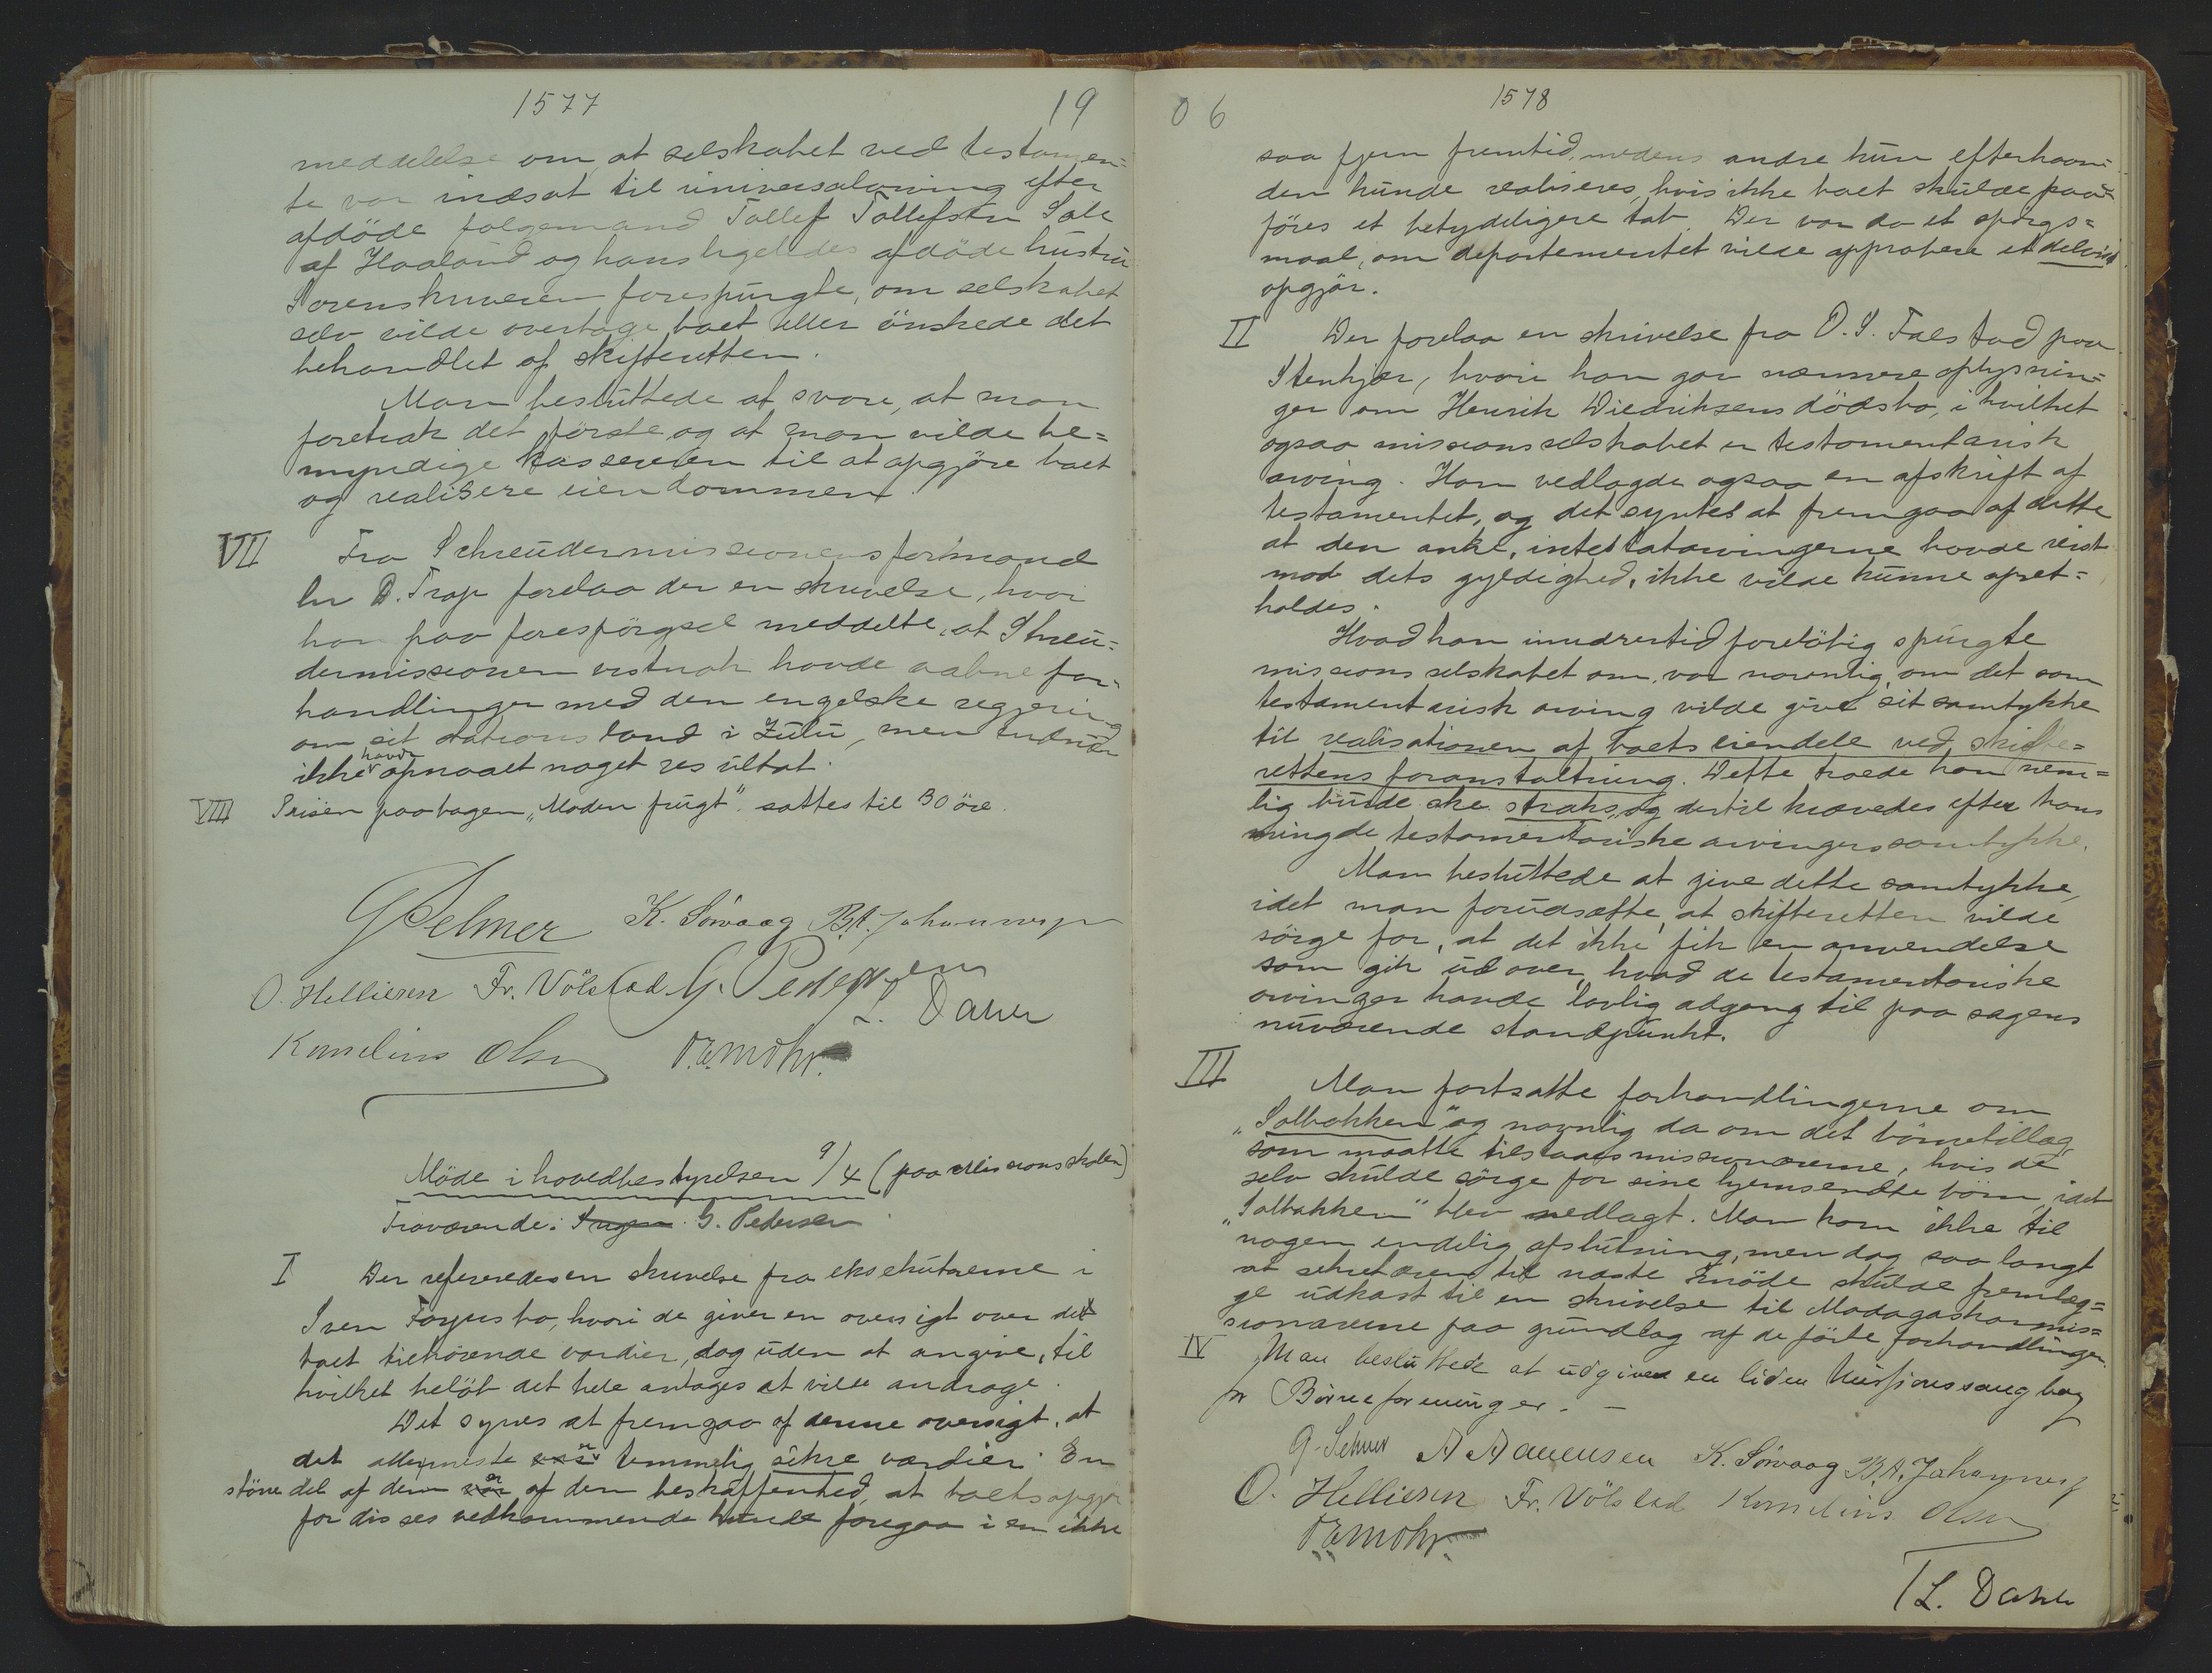 1577 19
meddelelse om, at selskabet ved testamen-
te var indsat til universalarving efter
afdöde folgemand Tollef Tollefsen Sale
af Haaland og hans ligeledes afdöde hustru
Sorenskriveren forespurgte, om selskabet
selv vilde overtage boet eller önskede det
behandlet af skifteretten.
Man besluttede at svare, at man
foretrak det förste og at man vilde be-
myndige kassereren til at opgjöre boet
og realisere eiendommen.
VII Fra Schreudermissionens formand
hr D. Trap forelaa der en skrivelse, hvori
han paa forespörgsel meddelte, at Schreu-
dermissionen vistnok havde aabne for-
handlinger med den engelske regjering
om sit stationsland i Zulu, men endnu
ikke havde opnaaet noget resultat.
VIII Prisen paa bogen "Moden frugt" sattes til 30 öre.
G Selmer K. Sörvaag B.A. Johannesen
O. Helliesen Fr. Völstad G. Pedersen
L. Dahle
Kornelius Olsen O. E. Mohr.
Möde i hovedbestyrelsen 9/4 (paa Missionsskolen)
Fraværende: Ingen G. Pedersen
I Der refereredes en skrivelse fra eksekutorerne i
Sven Foyns bo, hvori de giver en oversigt over det
boet tilhörende værdier, dog uden at angive, til
hvilket belöb det hele antages at ville andrage.
Det synes at fremgaa af denne oversigt, at
det allermeste er temmelig sikre værdier. En
större del af dem er af den beskaffenhed, at boets opgjör
for disses vedkommende kunde foregaa i en ikke
06 1578
saa fjern fremtid, medens andre kun efterhaan-
den kunde realiseres, hvis ikke boet skulde paa-
föres et betydeligere tab. Der var da et spörgs-
maal, om departementet vilde approbere et delvist
opgjör.
II Der forelaa en skrivelse fra O. S. Falstad paa
Stenkjær, hvori han gav nærmere oplysnin-
ger om Henrik Diedriksens dödsbo, i hvilket
ogsaa missionsselskabet er testamentarisk
arving. Han vedlagde ogsaa en afskrift af
testamentet, og det syntes at fremgaa af dette
at den anke, intestatarvingerne havde reist
mod dets gyldighed, ikke vilde kunne opret-
holdes.
Hvad han imidlertid forelöbig spurgte
missionsselskabet om, var navnlig, om det som
testamentarisk arving vilde give sit samtykke
til realisationen af boets eiendele ved skifte-
rettens foranstaltning. Dette troede han nem-
lig burde ske straks, og dertil krævedes efter hans
mening de testamentariske arvingers samtykke.
Man besluttede at give dette samtykke,
idet man forudsatte, at skifteretten vilde
sörge for, at det ikke fik en anvendelse
som gik ud over, hvad de testamentariske
arvinger havde lovlig adgang til paa sagens
nuværende standpunkt.
III Man fortsatte forhandlingerne om
"Solbakken" og navnlig da om det börnetillæg,
som maatte tilstaaes missionærerne, hvis de
selv skulde sörge for sine hjemsendte börn, idet
"Solbakken" blev nedlagt. Man kom ikke til
nogen endelig afslutning, men dog saa langt
at sekretæren til næste möde skulde fremlæg-
ge udkast til en skrivelse til Madagaskarmis-
sionærerne paa grundlag af de förte forhandlinger.
IV Man besluttede at udgive en liden Missionssangbog
for Börneforeninger. —
G. Selmer A Aanensen K. Sörvaag B.A. Johannesen
O. Helliesen Fr. Völstad Kornelius Olsen
O E Mohr.
L. Dahle